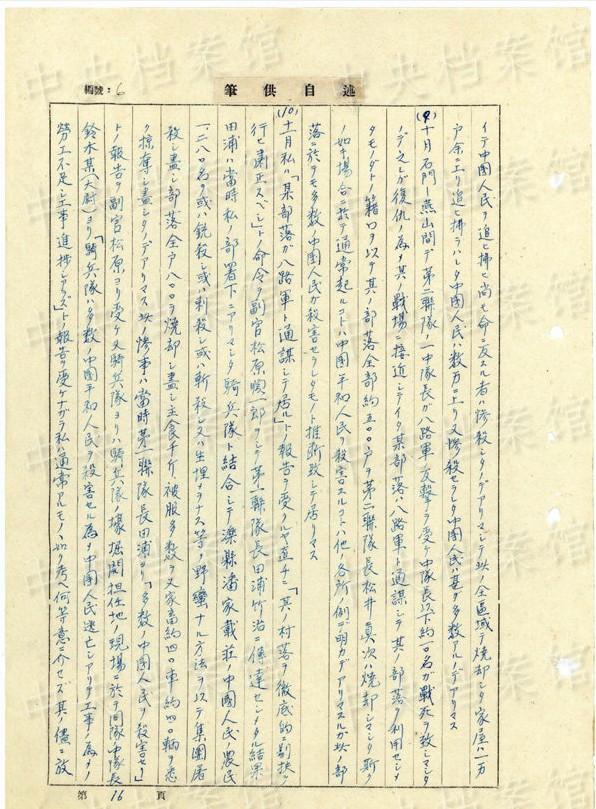 述自供筆
編號：6
イテ中国人民ヲ追ヒ拂ヒ尚モ命ニ反スル者ハ惨殺シタノデアリマシテ此ノ全區域デ焼却シタ家屋ハ一万
戸余ニ上リ追ヒ拂ラハレタ中国人民ハ数万ニ上リ又惨殺セラレタ中国人民ハ甚ダ多数アルノデアリマス
(9)十月石門、燕山間デ第二聯隊ノ一中隊長ガ八路軍ノ反撃ヲ受ケ中隊長以下約一〇名ガ戦死ヲ致シマシタ
ノデ之レガ復仇ノ為メ其ノ戦場ニ接近シテイタ某部落ハ八路軍ト通謀シテ其ノ部落ヲ利用セシメ
タモノダトノ籍口ヲ以テ其ノ部落全部約五〇〇戸ヲ第二聯隊長松井真次ハ焼却シマシタ斯ク
ノ如キ場合ニ於テ通常起ルコトハ中国平和人民ヲ殺害スルコトハ他ノ各所ノ例デ明カデアリマスルガ此ノ部
落ニ於テモ多数ノ中国人民ガ殺害セラレタモノト推断致シテ居リマス
(10)十一月私ハ「某部落ガ八路軍ト通謀シテ居ル」トノ報告ヲ受クルヤ直チニ「其ノ村落ヲ徹底的ニ剔抉ヲ
行ヒ粛正スベシ」トノ命令ヲ副官松原順一郎ヲシテ第一聯隊長田浦竹治ニ傳達セシメタル結果
田浦ハ当時私ノ部署下ニアリマシタ騎兵隊ト結合シテ灤縣潘家戴莊ノ中国人民農民
一、二八〇名ヲ或ハ銃殺シ或ハ刺殺シ或ハ斬殺シ又ハ生埋ヲナス等ノ野蠻ナル方法ヲ以テ集團屠
殺シ盡シ部落全戸八〇〇ヲ焼却シ盡シ主食千斤、被服多数ヲ又家畜約四〇、車約四〇輌ヲ悉
ク掠奪シ盡シタノデアリマス此ノ惨事ハ当時第一聯隊長田浦ヨリ「多数ノ中国人民ヲ殺害セリ」
トノ報告ヲ副官松原ヨリ受ケ又騎兵隊ヨリハ騎兵隊ノ壕掘開担任地ノ現場ニ於テ同隊中隊長
鈴木某(大尉)ヨリ「騎兵隊ハ多数ノ中国平和人民ヲ殺害セル為メ中国人民逃亡シアリテ工事ノ為メノ
勞工不足シ工事進捗シアラズ」トノ報告ヲ受ケナガラ私ハ通常アルモノノ如ク考ヘ何等意ニ介セズ其ノ儘ニ放
第16頁
中央档案馆